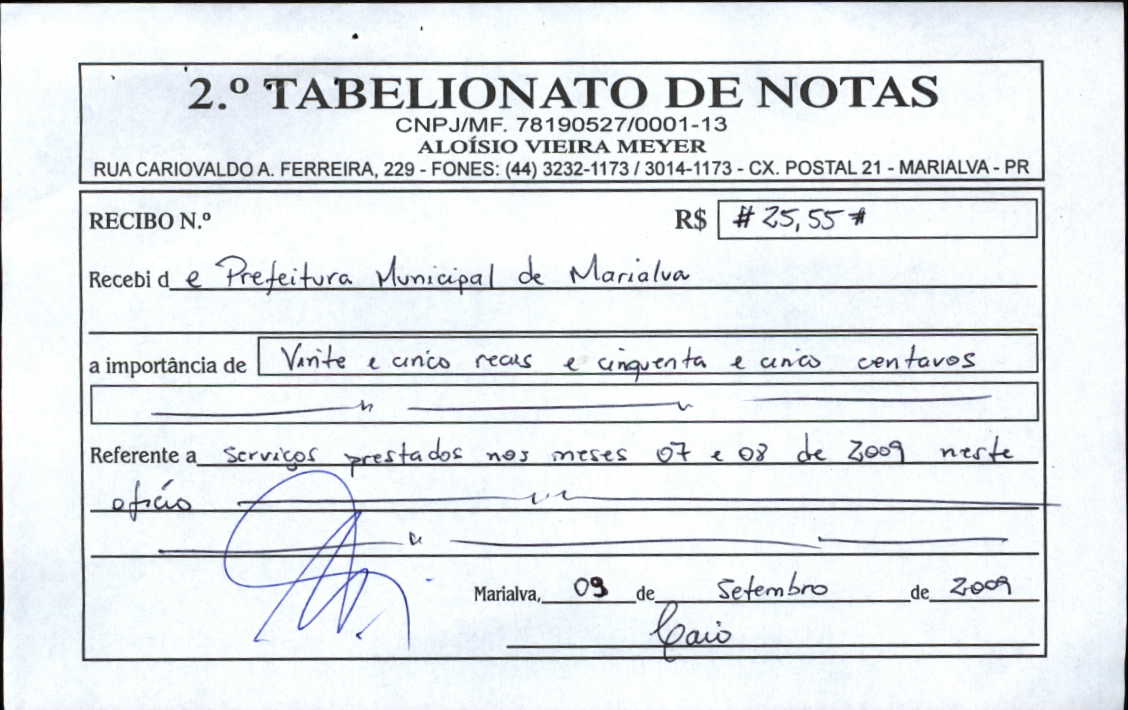 2.º TABELIONATO DE NOTAS
CNPJ/MF. 78190527/0001-13
ALOÍSIO VIEIRA MEYER
RUA CARIOVALDO A. FERREIRA, 229 - FONES: (44) 3232-1173 / 3014-1173 - CX. POSTAL 21 - MARIALVA - PR
RECIBO N.º R$ # 25,55 #
Recebi d e Prefeitura Municipal de Marialva
a importância de Vinte e cinco reais e cinquenta e cinco centavos
Referente a serviços prestados nos meses 07 e 08 de 2009 neste
ofício
Marialva, 09 de Setembro de 2009
Caio